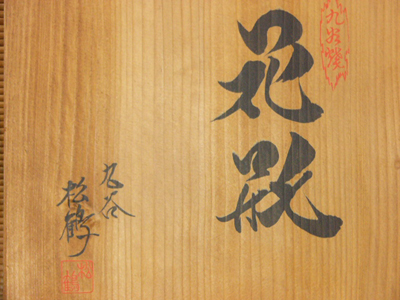 九谷焼
花瓶
九谷
松鶴